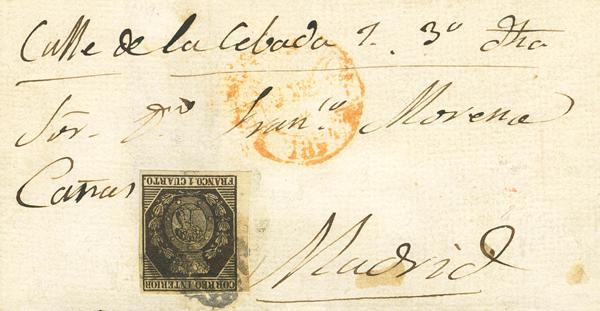 Calle de la Cebada 1. 3º dha
Sor. Dn Franco Moreno
Cañas
Madrid
FRANCO. 1 CUARTO.
CORREO INTERIOR